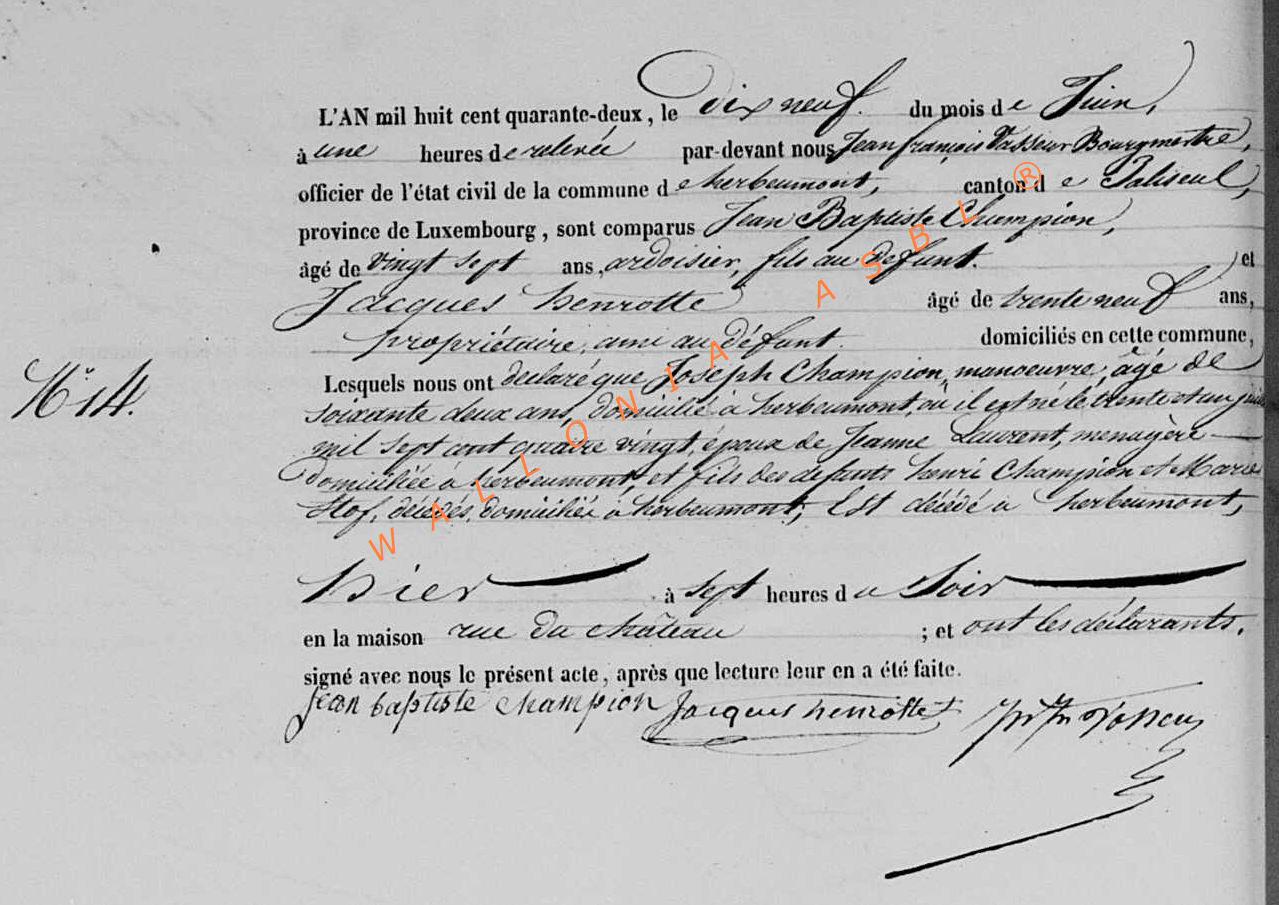 L'AN mil huit cent quarante-deux, le dix neuf du mois de Juin,
à une heures de relevée par-devant nous Jean françois Vasseur Bourgmestre,
officier de l'état civil de la commune de herbeumont, canton de Paliseul,
province de Luxembourg, sont comparus Jean Baptiste Champion,
âgé de vingt sept ans, ardoisier, fils au défunt. et
Jacques henrotte âgé de trente neuf ans,
propriétaire, ami au défunt. domiciliés en cette commune,
N° 14.
Lesquels nous ont déclaré que Joseph Champion, manoeuvre, âgé de
soixante deux ans, domicilié à herbeumont, où il est né le trente et un
mil sept cent quatre vingt, époux de Jeanne Laurent, menagère
domiciliée à herbeumont, et fils des defunts henri Champion et Marie
Hof, décédés, domiciliés à herbeumont; Est décédé à herbeumont,
hier à sept heures du Soir
en la maison rue du château ; et ont les déclarants,
signé avec nous le présent acte, après que lecture leur en a été faite.
Jean baptiste champion Jacques henrotte
WALLONIA ASBL ®